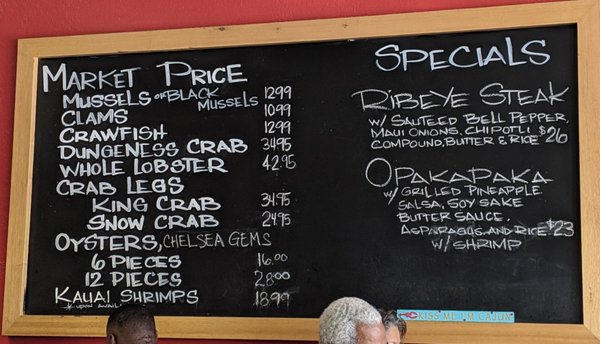 MARKET PRICE
MUSSELS or BLACK MUSSELS 12.99
CLAMS 10.99
CRAWFISH 12.99
DUNGENESS CRAB 34.95
WHOLE LOBSTER 42.95
CRAB LEGS
KING CRAB 34.95
SNOW CRAB 24.95
OYSTERS, CHELSEA GEMS
6 PIECES 16.00
12 PIECES 28.00
KAUAI SHRIMPS 18.99
* UPON AVAIL
SPECIALS
RIBEYE STEAK
W/ SAUTEED BELL PEPPER,
MAUI ONIONS, CHIPOTLI
COMPOUND, BUTTER & RICE $26
OPAKAPAKA
W/ GRILLED PINEAPPLE
SALSA, SOY SAKE
BUTTER SAUCE,
ASPARAGUS, AND RICE $23
W/ SHRIMP
KISS ME I'M CAJUN